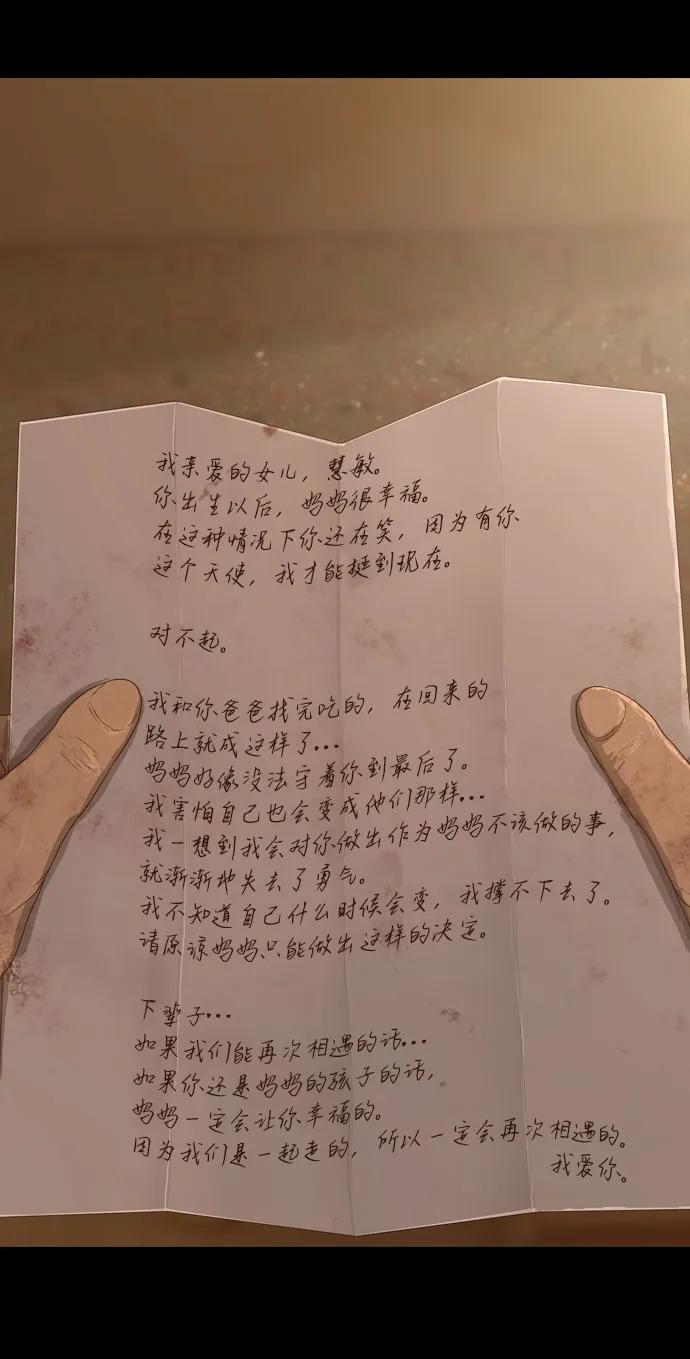 我亲爱的女儿，慧敏。
你出生以后，妈妈很幸福。
在这种情况下你还在笑，因为有你
这个天使，我才能挺到现在。
对不起。
我和你爸爸找完吃的，在回来的
路上就成这样了...
妈妈好像没法守着你到最后了。
我害怕自己也会变成他们那样...
我一想到我会对你做出作为妈妈不该做的事，
就渐渐地失去了勇气。
我不知道自己什么时候会变，我撑不下去了。
请原谅妈妈只能做出这样的决定。
下辈子...
如果我们能再次相遇的话...
如果你还是妈妈的孩子的话，
妈妈一定会让你幸福的。
因为我们是一起走的，所以一定会再次相遇的。
我爱你。